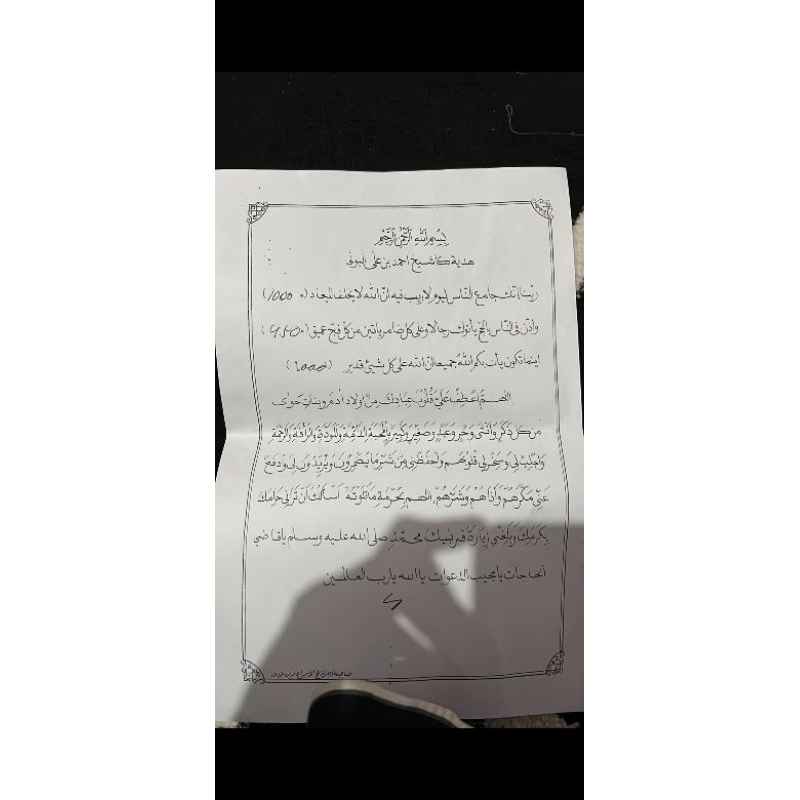 بِسْمِ اللهِ الرَّحْمٰنِ الرَّحِيْمِ
هدية كاشيخ احمد بن على البونى
ربّنا انّك جامع النّاس ليوم لا ريب فيه انّ الله لا يخلف الميعاد (1000)
واذّن فى النّاس بالحجّ يأتوك رجالا وعلى كل ضامر يأتين من كل فجّ عميق
اينما تكون يأت بكم اللهُ جميعا انّ الله على كل شيئ قدير (1000)
اللهمّ اعْطِفْ عَلَيَّ قُلُوْبَ عِبَادِكَ مِنْ اولاد ادم وبنات حوّى
مِن كل ذَكَرٍ وأنثى وَحُرٍ وَعَبْدٍ وَصَغِيْرٍ وَكَبِيْرٍ بِالْمَحَبَّةِ وَالْمَوَدَّةِ وَالرَّأْفَةِ وَالرَّحْمَةِ
وَاجْذِبْ لِى وَسَخِرْ لِى قُلُوبَهُم وَاحْفَظْنِى مِنْ شَرِّ مَا يُضْمِرُوْنَ وَيُرِيْدُوْنَ لِى وَدَفِعْ
عَنِّى مَكْرَهُمْ وَأَذَاهُمْ وَشَرَّهُمْ، اللهم بِحُرْمَةِ مَا تَلَوْتُهُ اَسْأَلُكَ اَنْ تَرَانِى حَرَامَكَ
بِكَرَمِكَ وَبَلِّغْنِي زِيَارَةَ قَبْرِ نَبِيِّكَ محمّدٍ صلى الله عليه وسلم يا قاضي
الحاجات يا مجيب الدعوات يا الله يا رب العالمين